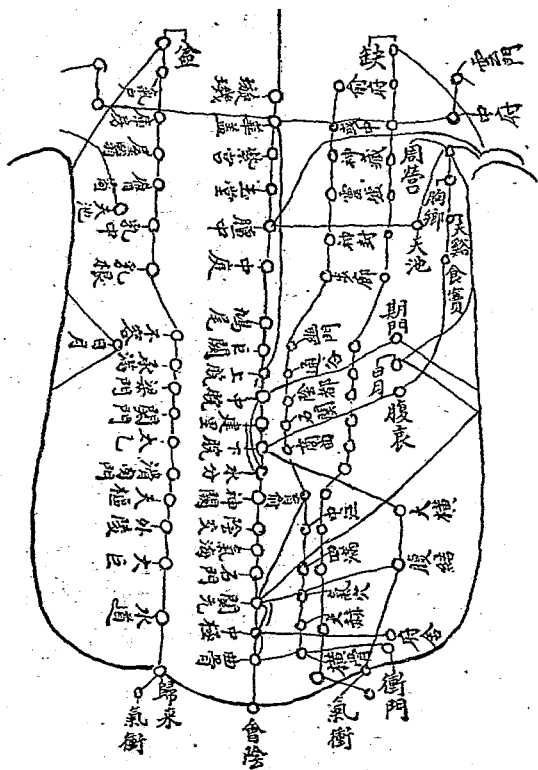 盆
氣戶
庫房
屋翳
膺窗
天池
乳中
乳根
日月
不容
承滿
梁門
關門
太乙
滑肉門
天樞
外陵
大巨
水道
歸来
氣衝
璇璣
華蓋
紫宮
玉堂
膻中
中庭
鳩尾
巨闕
上脘
中脘
建里
下脘
水分
神闕
陰交
氣海
石門
關元
中極
曲骨
會陰
缺
俞府
神藏
靈墟
神封
步廊
幽門
通谷
肓俞
中注
四滿
氣穴
大赫
橫骨
雲門
中府
周營
胸鄉
天谿
食竇
天池
期門
日月
腹哀
大橫
腹結
府舍
衝門
氣衝